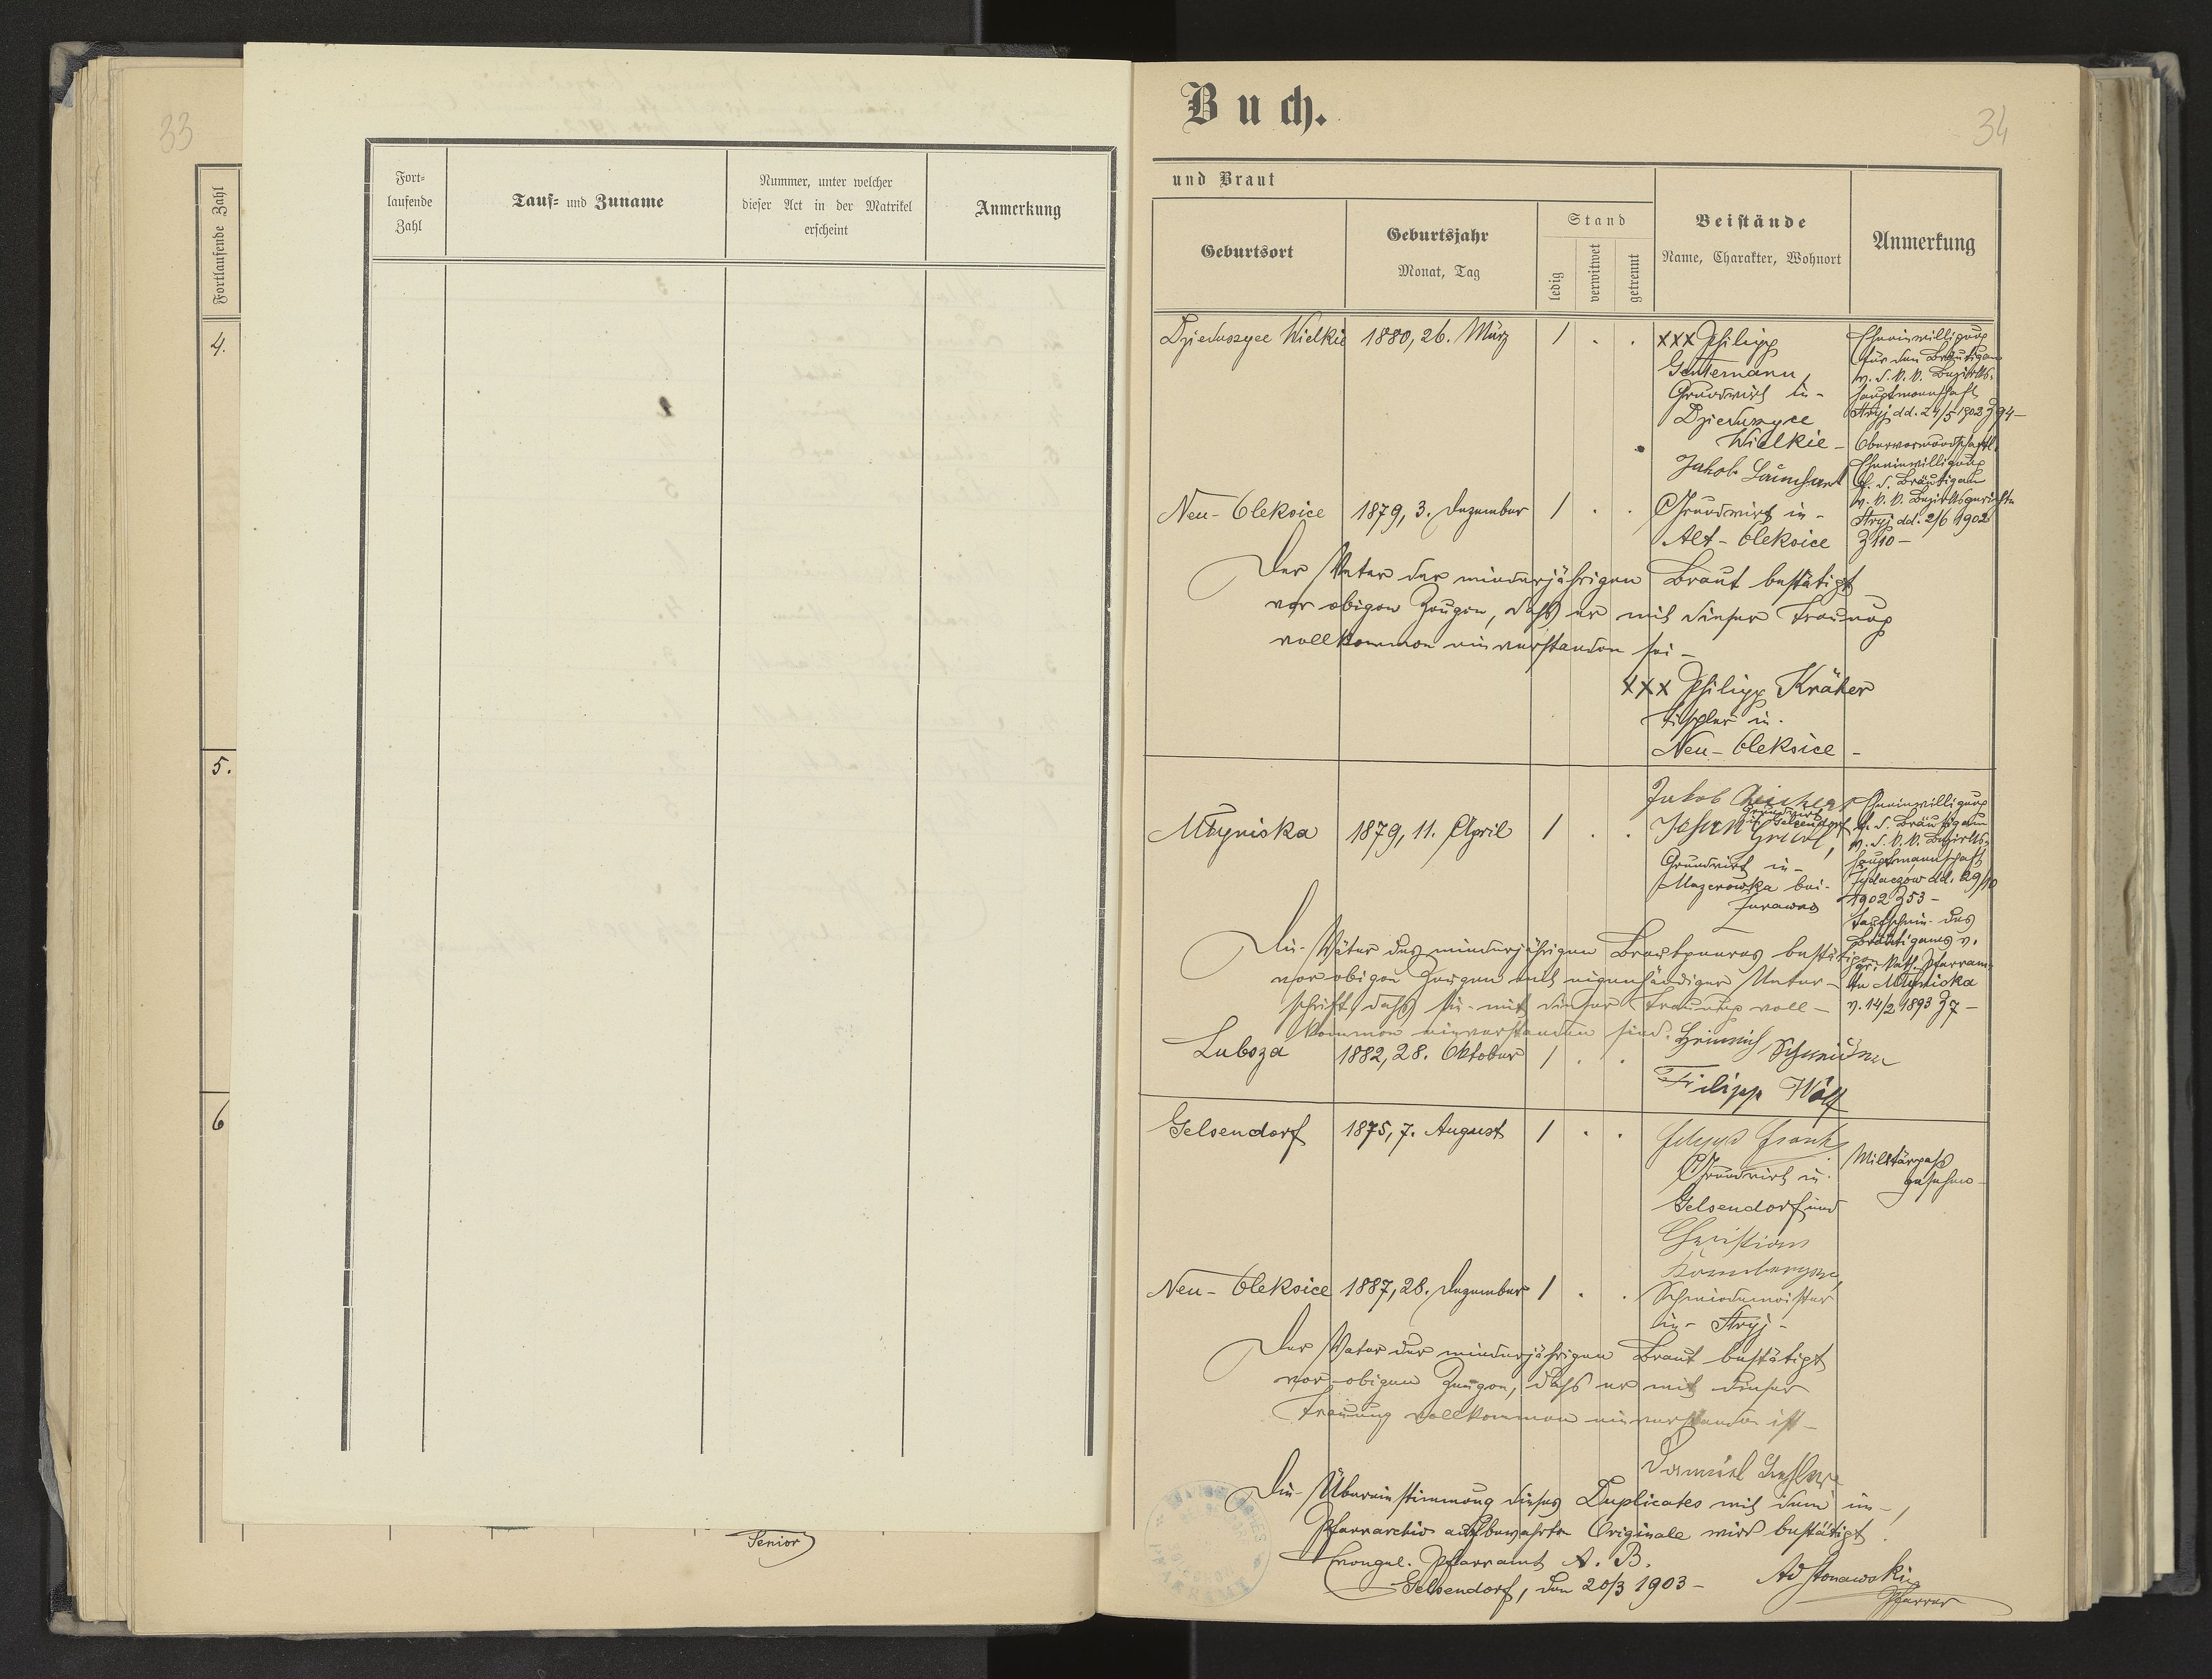 33
Fortlaufende Zahl
4.
5.
6
Fort-
laufende
Zahl
Tauf- und Zuname
Nummer, unter welcher
dieser Act in der Matrikel
erscheint
Anmerkung
Senior
Buch.
34
und Braut
Geburtsort
Geburtsjahr
Monat, Tag
Stand
ledig
verwitwet
getrennt
Beistände
Name, Charakter, Wohnort
Anmerkung
Dzieduszyce Wielkie 1880, 26. März 1 . .
xxx Philipp
Gentemann,
Grundwirt in
Dzieduszyce
Wielkie -
Jakob
Grundwirt in -
Alt- Oleksice
Eheeinwilligung
für den Bräutigam
v. d. k. k. Bezirks-
hauptmannschaft
Stryj dd. 24/5 1902 Z 94 -
Obervormundschaftl.
Eheeinwilligung
f. d. Bräutigam
v. k. k. Bezirksgerichte
Stryj dd. 2/6 1902
Z 110 -
Neu- Oleksice 1879, 3. Dezember 1 . .
Der Vater der minderjährigen Braut bestätigt
vor obigen Zeugen, daß er mit dieser Trauung
vollkommen einverstanden sei -
xxx Philipp Kräher
Tischler in
Neu- Oleksice -
Młyniska 1879, 11. April 1 . .
Jakob
Grundwirt
in Gelsendorf
Johann
Grundwirt in -
Mazurowka bei
Zurawno
Eheeinwilligung
f. d. Bräutigam
v. d. k. k. Bezirks-
hauptmannschaft
Zydaczow dd. 29/10
1902 Z 53 -
Taufschein des
Bräutigams v.
gr. kath. Pfarram-
te Młyniska
v. 14/2 1893 Z 7 -
Die Väter des minderjährigen Brautpaares bestätigen
vor obigen Zeugen mit eigenhändiger Unter-
schrift, daß sie mit dieser Trauung voll -
kommen einverstanden sind. Heinrich Schneider
Lubsza 1882, 28. Oktober 1 . .
Filipp Wolf
Gelsendorf 1875, 7. August 1 . .
Frank
Grundwirt in
Gelsendorf und
Christian
Schmiedemeister
in - Stryj -
Militärpaß
gesehen -
Neu- Oleksice 1887, 28. Dezember 1 . .
Der Vater der minderjährigen Braut bestätigt
vor obigen Zeugen, daß er mit dieser
Trauung vollkommen einverstanden ist -
Daniel
Die Übereinstimmung dieses Duplicates mit dem im -
Pfarrarchiv aufbewahrten Originale wird bestätigt.
Evangel. Pfarramt A. B.
Gelsendorf, den 20/3 1903 -
Pfarrer